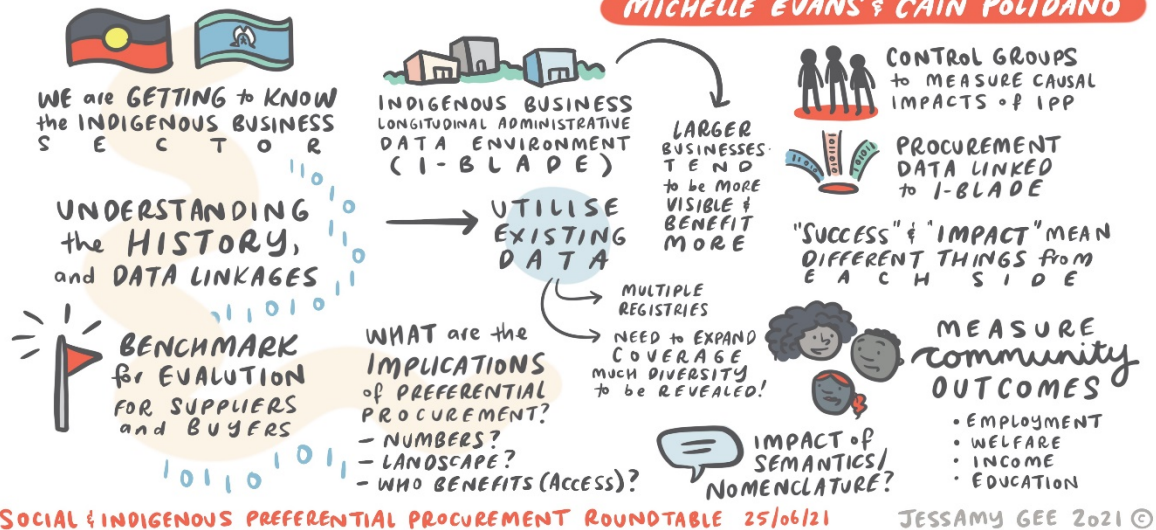 MICHELLE EVANS & CAIN POLIDANO
WE are GETTING to KNOW
the INDIGENOUS BUSINESS
SECTOR
UNDERSTANDING
the HISTORY,
and DATA LINKAGES
BENCHMARK
for EVALUTION
FOR SUPPLIERS
and BUYERS
INDIGENOUS BUSINESS
LONGITUDINAL ADMINISTRATIVE
DATA ENVIRONMENT
(I-BLADE)
UTILISE
EXISTING
DATA
MULTIPLE
REGISTRIES
NEED to EXPAND
COVERAGE
MUCH DIVERSITY
to be REVEALED!
LARGER
BUSINESSES
TEND
to be MORE
VISIBLE &
BENEFIT
MORE
WHAT are the
IMPLICATIONS
of PREFERENTIAL
PROCUREMENT?
- NUMBERS?
- LANDSCAPE?
- WHO BENEFITS (ACCESS)?
CONTROL GROUPS
to MEASURE CAUSAL
IMPACTS of IPP
PROCUREMENT
DATA LINKED
to I-BLADE
"SUCCESS" & "IMPACT" MEAN
DIFFERENT THINGS from
EACH SIDE
MEASURE
community
OUTCOMES
• EMPLOYMENT
• WELFARE
• INCOME
• EDUCATION
IMPACT of
SEMANTICS/
NOMENCLATURE?
SOCIAL & INDIGENOUS PREFERENTIAL PROCUREMENT ROUNDTABLE 25/06/21
JESSAMY GEE 2021 ©